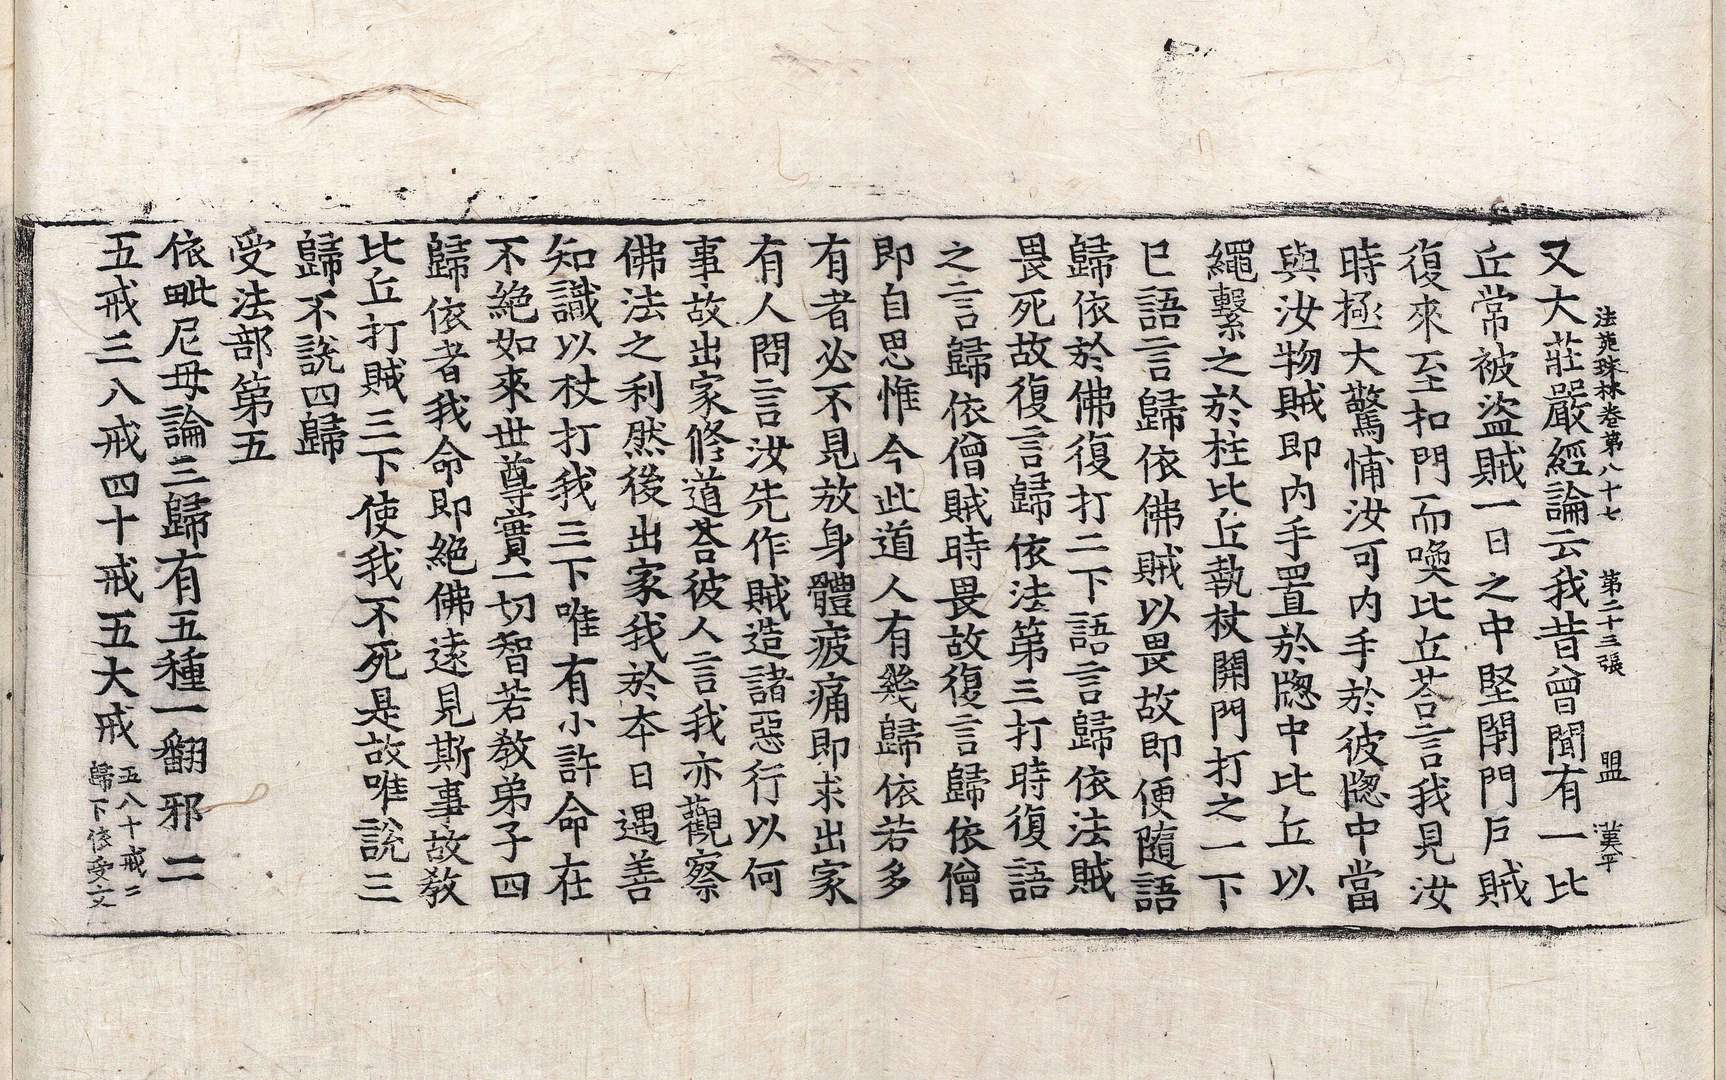 法苑珠林卷第八十七 第二十三張 盟 漢平
又大莊嚴經論云我昔曾聞有一比
丘常被盜賊一日之中堅閇門戶賊
復來至扣門而喚比丘荅言我見汝
時極大驚怖汝可內手於彼牎中當
與汝物賊即內手置於牎中比丘以
繩繫之於柱比丘執杖開門打之一下
已語言歸依佛賊以畏故即便隨語
歸依於佛復打二下語言歸依法賊
畏死故復言歸依法第三打時復語
之言歸依僧賊時畏故復言歸依僧
即自思惟今此道人有幾歸依若多
有者必不見放身體疲痛即求出家
有人問言汝先作賊造諸惡行以何
事故出家修道荅彼人言我亦觀察
佛法之利然後出家我於本日遇善
知識以杖打我三下唯有小許命在
不絕如來世尊實一切智若教弟子四
歸依者我命即絕佛遠見斯事故教
比丘打賊三下使我不死是故唯說三
歸不說四歸
受法部第五
依毗尼母論三歸有五種一翻邪二
五戒三八戒四十戒五大戒 五八十戒二
歸下依受文